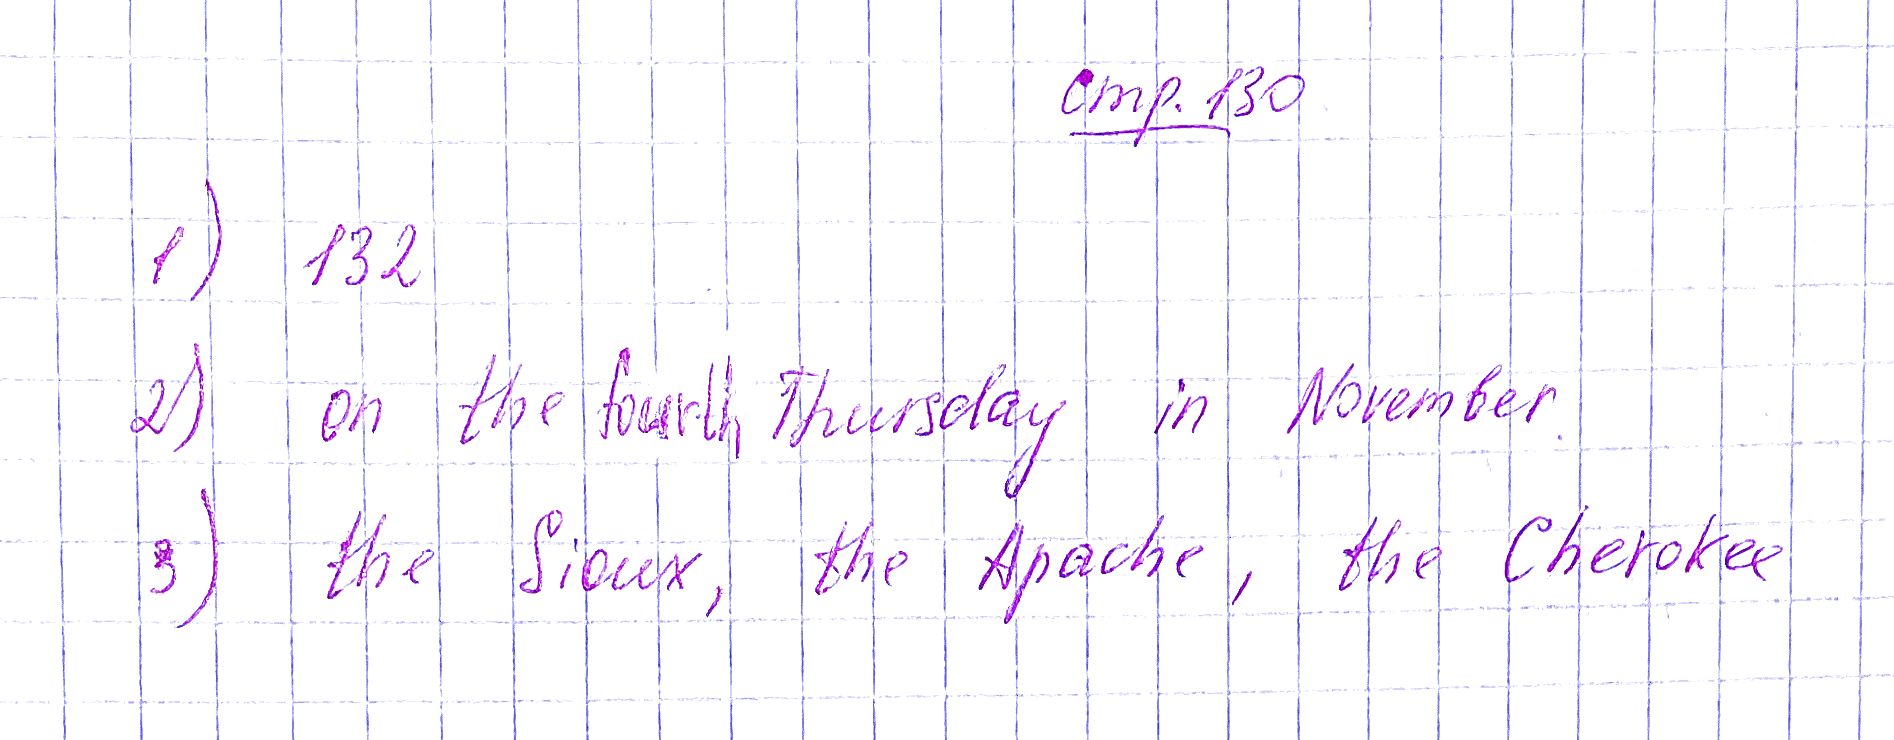 стр. 130
1) 132
2) on the fourth Thursday in November.
3) the Sioux, the Apache, the Cherokee